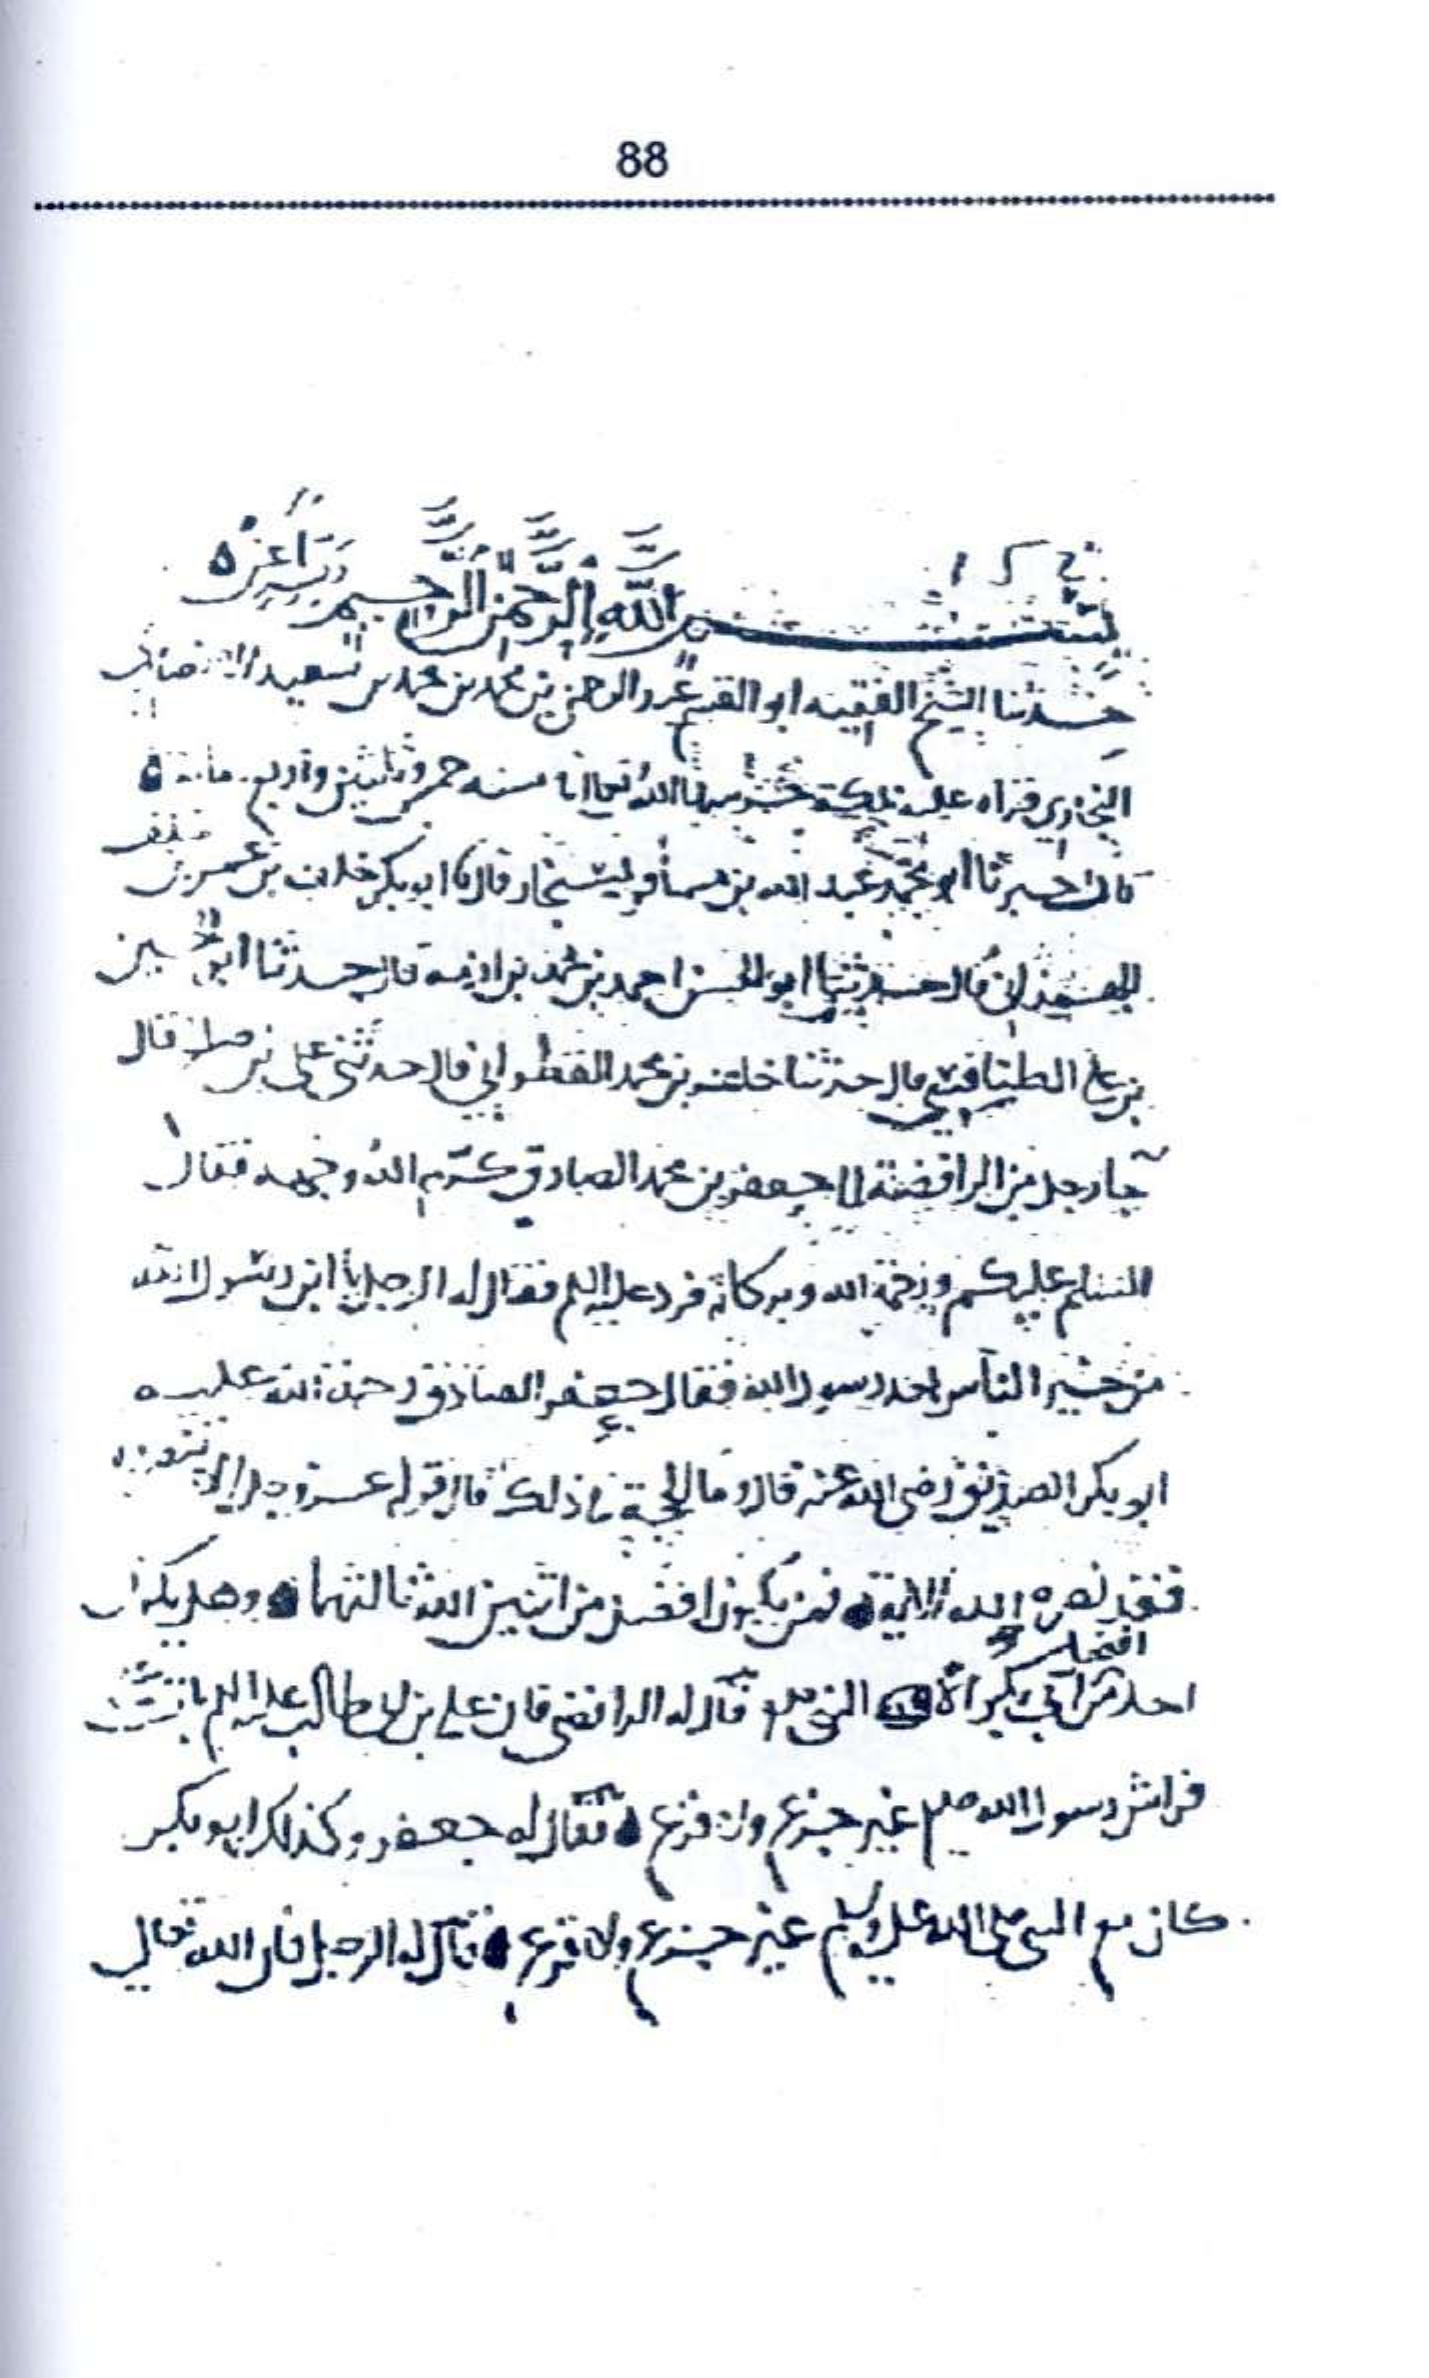 88
بسم الله الرحمن الرحيم رب يسر وأعن ٥
حدثنا الشيخ الفقيه ابو القسم عبد الرحمن بن محمد بن محمد بن سعيد الانصاري
البخاري قراه عليه بمكة حرسها الله تعالى سنه خمس وثلثين واربع مائة ٥
قال اخبرنا ابو محمد عبد الله بن مسافر قال نا ابو بكر خلف بن عمر بن خلف
الهمذاني قال حدثنا ابو الحسن احمد بن محمد بن ازمه قال حدثنا ابو الحسين
بن علي الطنافسي قال حدثنا خلف بن محمد القطواني قال حدثني علي بن صالح قال
جا رجل من الرافضة الى جعفر بن محمد الصادق كرم الله وجهه فقال
السلم عليكم ورحمة الله وبركاته فرد عليه السلم فقال له الرجل يا ابن رسول الله
من خير الناس بعد رسول الله فقال جعفر الصادق رحمة الله عليه
ابو بكر الصديق رضي الله عنه قال وما الحجة في ذلك قال قوله عز وجل الا تنصروه
فقد نصره الله الاية ٥ فمن يكون افضل من اثنين الله ثالثهما ٥ وهل يكون
افضل
احد من ابي بكر الا النبي صلعم قال له الرافضي فان علي بن ابي طالب عليه السلم بات على
فراش رسول الله صلعم غير جزع ولا فزع ٥ فقال له جعفر وكذلك ابو بكر
كان مع النبي صلى الله عليه وسلم غير جزع ولا فزع ٥ قال له الرجل فان الله تعالى